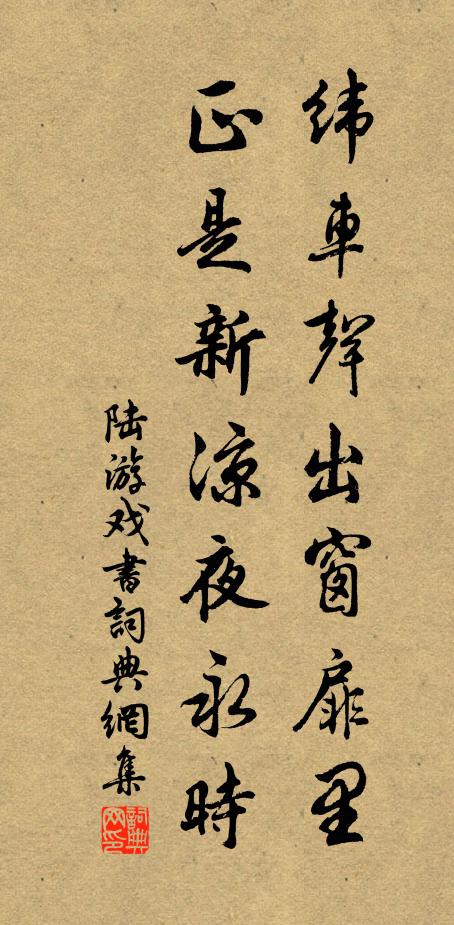 緯車聲出窗扉里
正是新涼夜永時
陆游戏書詞典網集
詞典网印